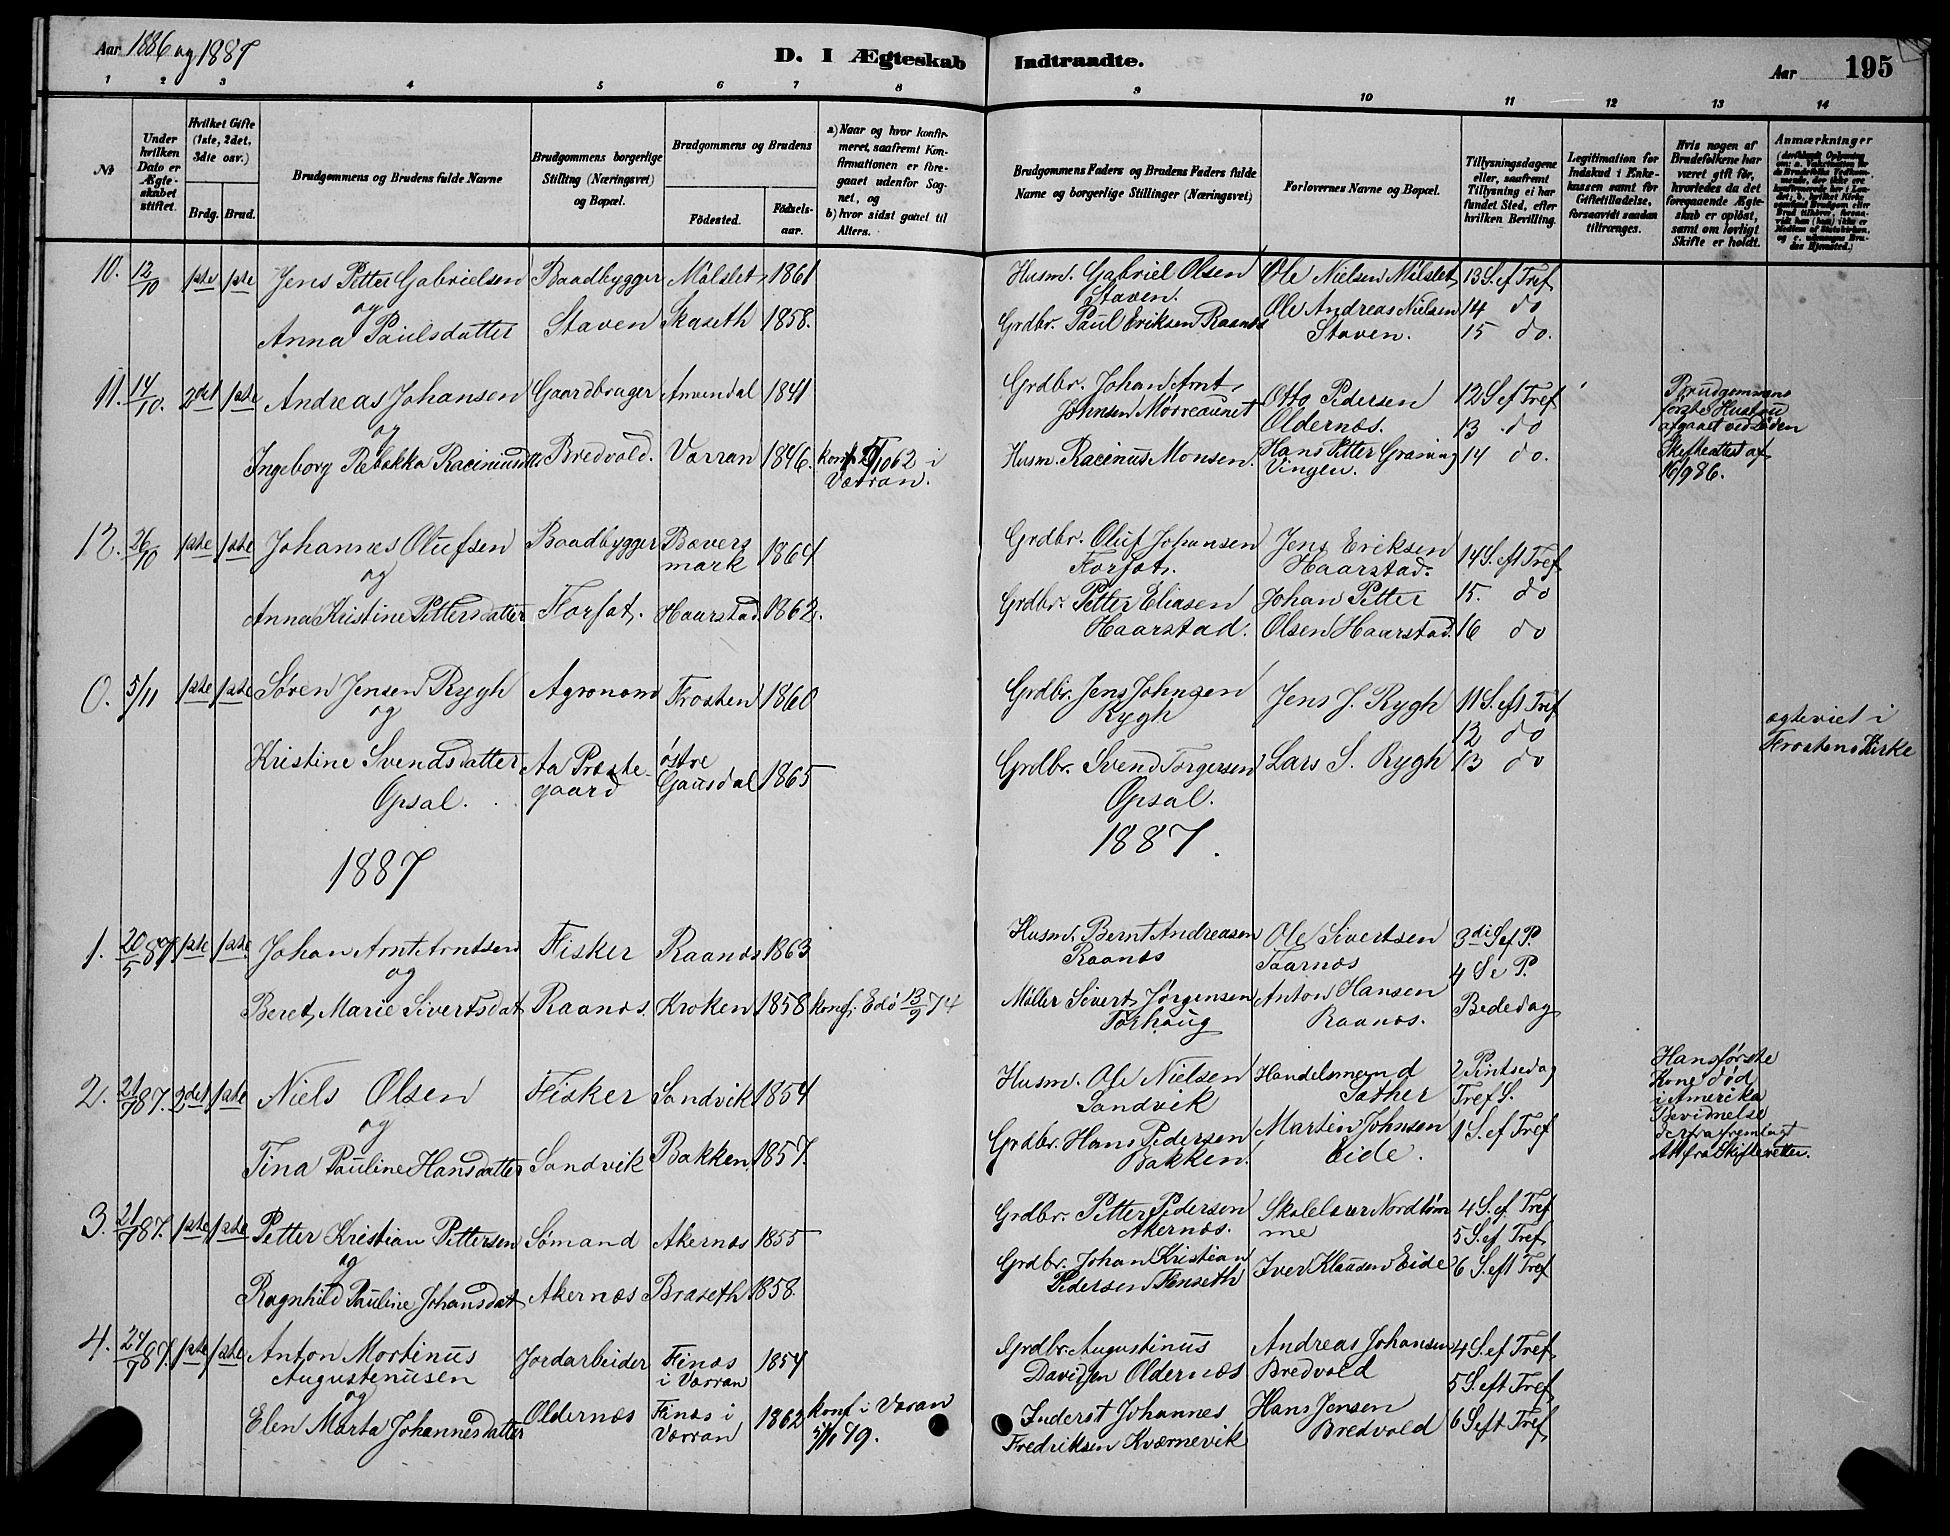 Aar 1886 og 1887
D. I Ægteskab Indtraadte.
Aar 195
1 2 3 4 5 6 7 8 9 10 11 12 13 14
№
Under hvilken Dato er Ægte-skabet stiftet.
Hvilket Gifte (1ste, 2det, 3die osv.)
Brdg. Brud.
Brudgommens og Brudens fulde Navne
Brudgommens borgerlige Stilling (Næringsvei) og Bopæl.
Brudgommens og Brudens
Fødested. Fødsels-aar.
a) Naar og hvor konfir-meret, saafremt Kon-firmationen er fore-gaaet udenfor Sog-net, og
b) hvor sidst gaaet til Alters.
Brudgommens Faders og Brudens Faders fulde Navne og borgerlige Stillinger (Næringsvei)
Forlovernes Navne og Bopæl.
Tillysningsdagene eller, saafremt Tillysning ei har fundet Sted, efter hvilken Bevilling.
Legitimation for Indskud i Enke-kassen samt for Giftetilladelse, forsaavidt saadan tiltrænges.
Hvis nogen af Brudefolkene har været gift før, hvorledes da det foregaaende Ægte-skab er opløst, samt om lovligt Skifte er holdt.
Anmærkninger
10. 12/10 1ste 1ste Jens Petter Gabrielsen Baadbygger Mølslet 1861 Husm. Gabriel Olsen Ole Nielsen Mølslet 13 S. ef Tref
og Staven. Ole Andreas Nielsen 14 do
Anna Paulsdatter Staven Skaseth 1858. Grdbr. Paul Eriksen Raanes Staven. 15 do.
11. 14/10. 2det 1ste Andreas Johansen Gaardbruger Aavendal 1841 Grdbr. Johan Arnt Otto Pedersen 12 S ef Tref Brudgommens
og Johnsen Mørreaunet Oldernæs. 13 do første Hustru
afgaaet ved Døden
Ingeborg Rebekka Raciniusd Bredvold. Værran 1846. Husm. Racinus Monsen. Hans Petter 14 do. Skifteattest af
Værran. Vingen. 16/9 86.
12. 26/10 1ste 1ste Johannes Olufsen Baadbygger Bævers 1864 Grdbr. Oluf Johansen Jens Eriksen 14 S. eft Tref
og mark Forfot. Haarstad.
Anna Kristine Pettersdatter Forfot. Haarstad. 1862. Grdbr. Petter Eliasen Johan Petter 15. do
Haarstad. Olsen Haarstad. 16 do
0. 5/11 1ste 1ste Søren Jensen Rygh Agronom Frosten 1860 Grdbr. Jens Johnsen Jens J. Rygh 11 S. eft Tref
og Rygh 12 do ægteviet i
Kristine Svendsdatter Aa Præste- østre 1865 Grdbr. Svend Torgersen Lars S. Rygh 13 do Frostens Kirke
Opsal. gaard Gausdal Opsal.
1887 1887.
1. 20/5 87 1ste 1ste Johan Arnt Arntsen Fisker Raanæs 1863 Husm. Bernt Andreasen Ole Sivertsen 3die S ef P.
og Raanæs Taarnæs 4 S e P.
Beret Marie Sivertsdat Raanæs. Kroken 1858 konf. Edø 13/9 74 Møller Sivert Jørgensen Anton Hansen Bededag
Torhaug Raanæs.
2. 21/7 87. 2det 1ste Niels Olsen Fisker Sandvik 1854 Husm. Ole Nielsen Handelsmand 2 Pintsedag Hans første
og Sandvik Sæther Tref S. Kone død
i Amerika
Bevidnelse
Tina Pauline Hansdatter Sandvik Bakken 1857. Grdbr. Hans Pedersen Martin Johnsen 1 S. ef Tref derfra fremlagt
Bakken. Eide. Att fra Skifteretten.
3. 21/7 87. 1ste 1ste Petter Kristian Pettersen Sømand Akernæs 1855 Grdbr. Petter Pedersen Skolelærer Nordtøm 4 S. ef. Tref
og Akernæs. me 5 S. ef Tref
Ragnhild Pauline Johansdat Akernæs Braseth 1858. Grdbr. Johan Kristian Iver Klausen Eide 6 S. eft Tref
Pedersen Fenseth
4. 24/7 87. 1ste 1ste Anton Martinus Jordarbeider Finæs 1854 Grdbr. Augustinus Andreas Johansen 4 S. ef Tref
Augustenusen i Værran Davidsen Oldernæs Bredvold 5 S. eft Tref
og
Elen Marta Johannesdatter Oldernæs Finæs i 1862 konf i Væran Inderst Johannes Hans Jensen 6 S eft Tref
Værran 79. Fredriksen Kværnevik Bredvold